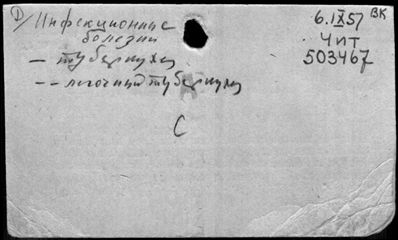 D/ Инфекционные
болезни
6.IX57 ВК
Чит
503467
— туберкулез
— — легочный туберкулез
С